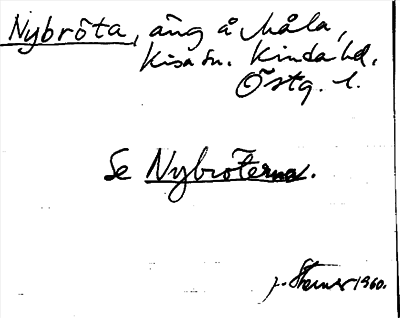 Nybröta, äng å Måla,
Kisa sn. Kinda hd.
Östg. l.
Se Nybroterna.
1960.